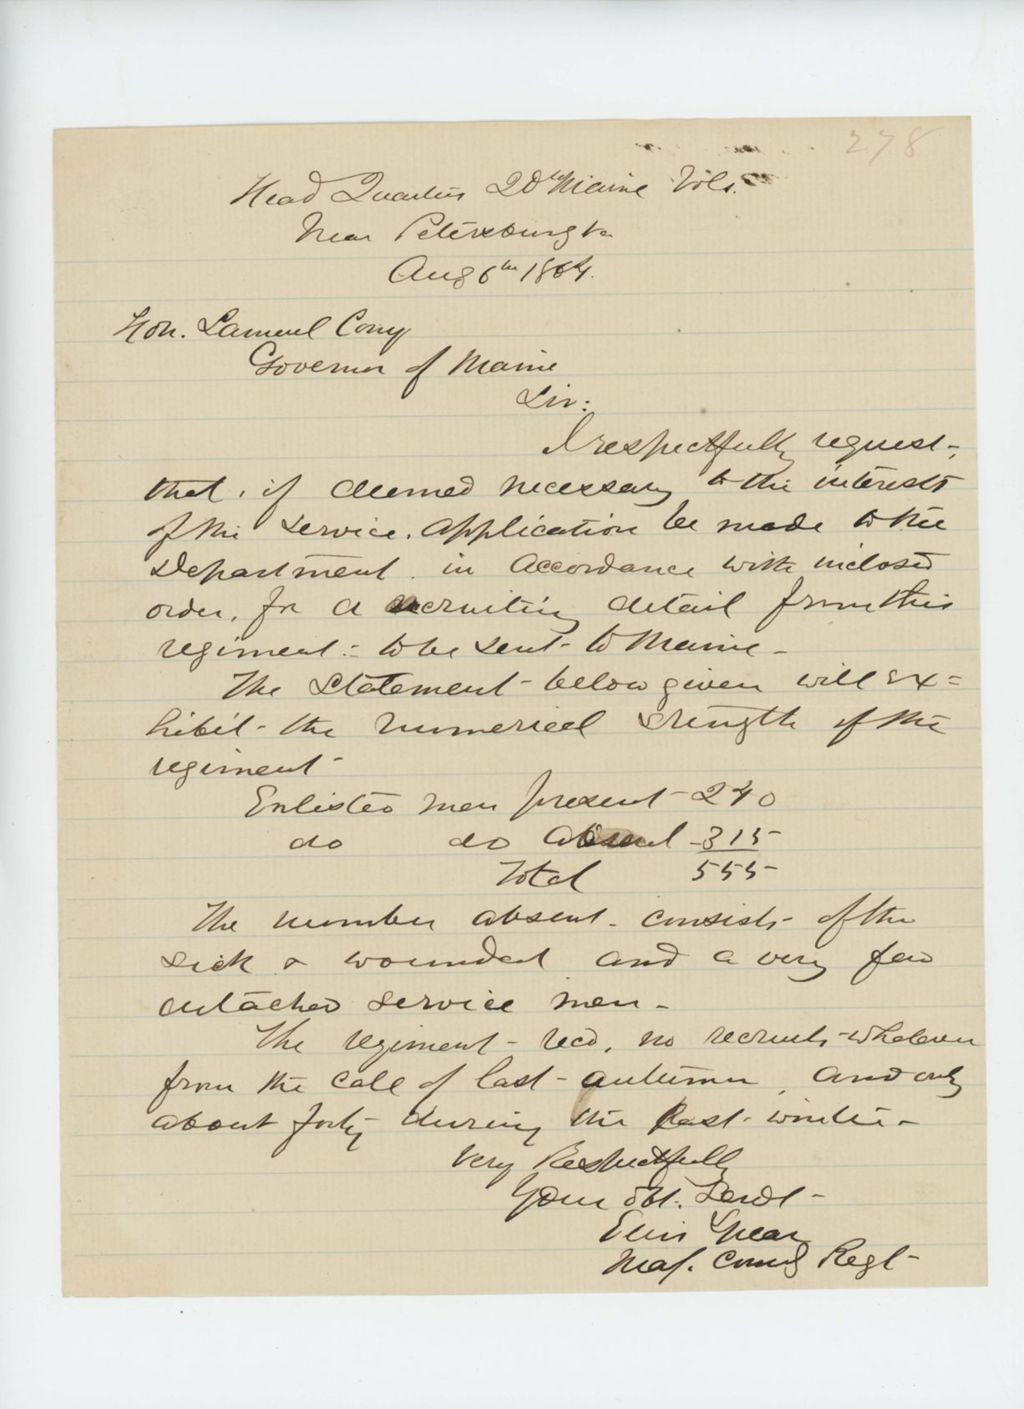 278
Head Quarters 20th Maine Vols.
Near Petersburg Va
Aug 6th 1864.
Hon. Samuel Cony
Governor of Maine
Sir:
I respectfully request,
that, if deemed necessary to the interests
of the service, application be made to the
Department in accordance with inclosed
order, for a recruiting detail from this
regiment: to be sent to Maine -
The statement below given will ex=
hibit the numerical strength of the
regiment
Enlisted men present - 240
do do absent - 315
Total 555
The number absent consists of the
sick & wounded and a very few
detached service men -
The regiment recd. no recruits whatever
from the call of last autumn, and only
about forty during the past winter -
Very Respectfully
Your Obt. Servt -
Ellis Spear
Maj. Comdg Regt -